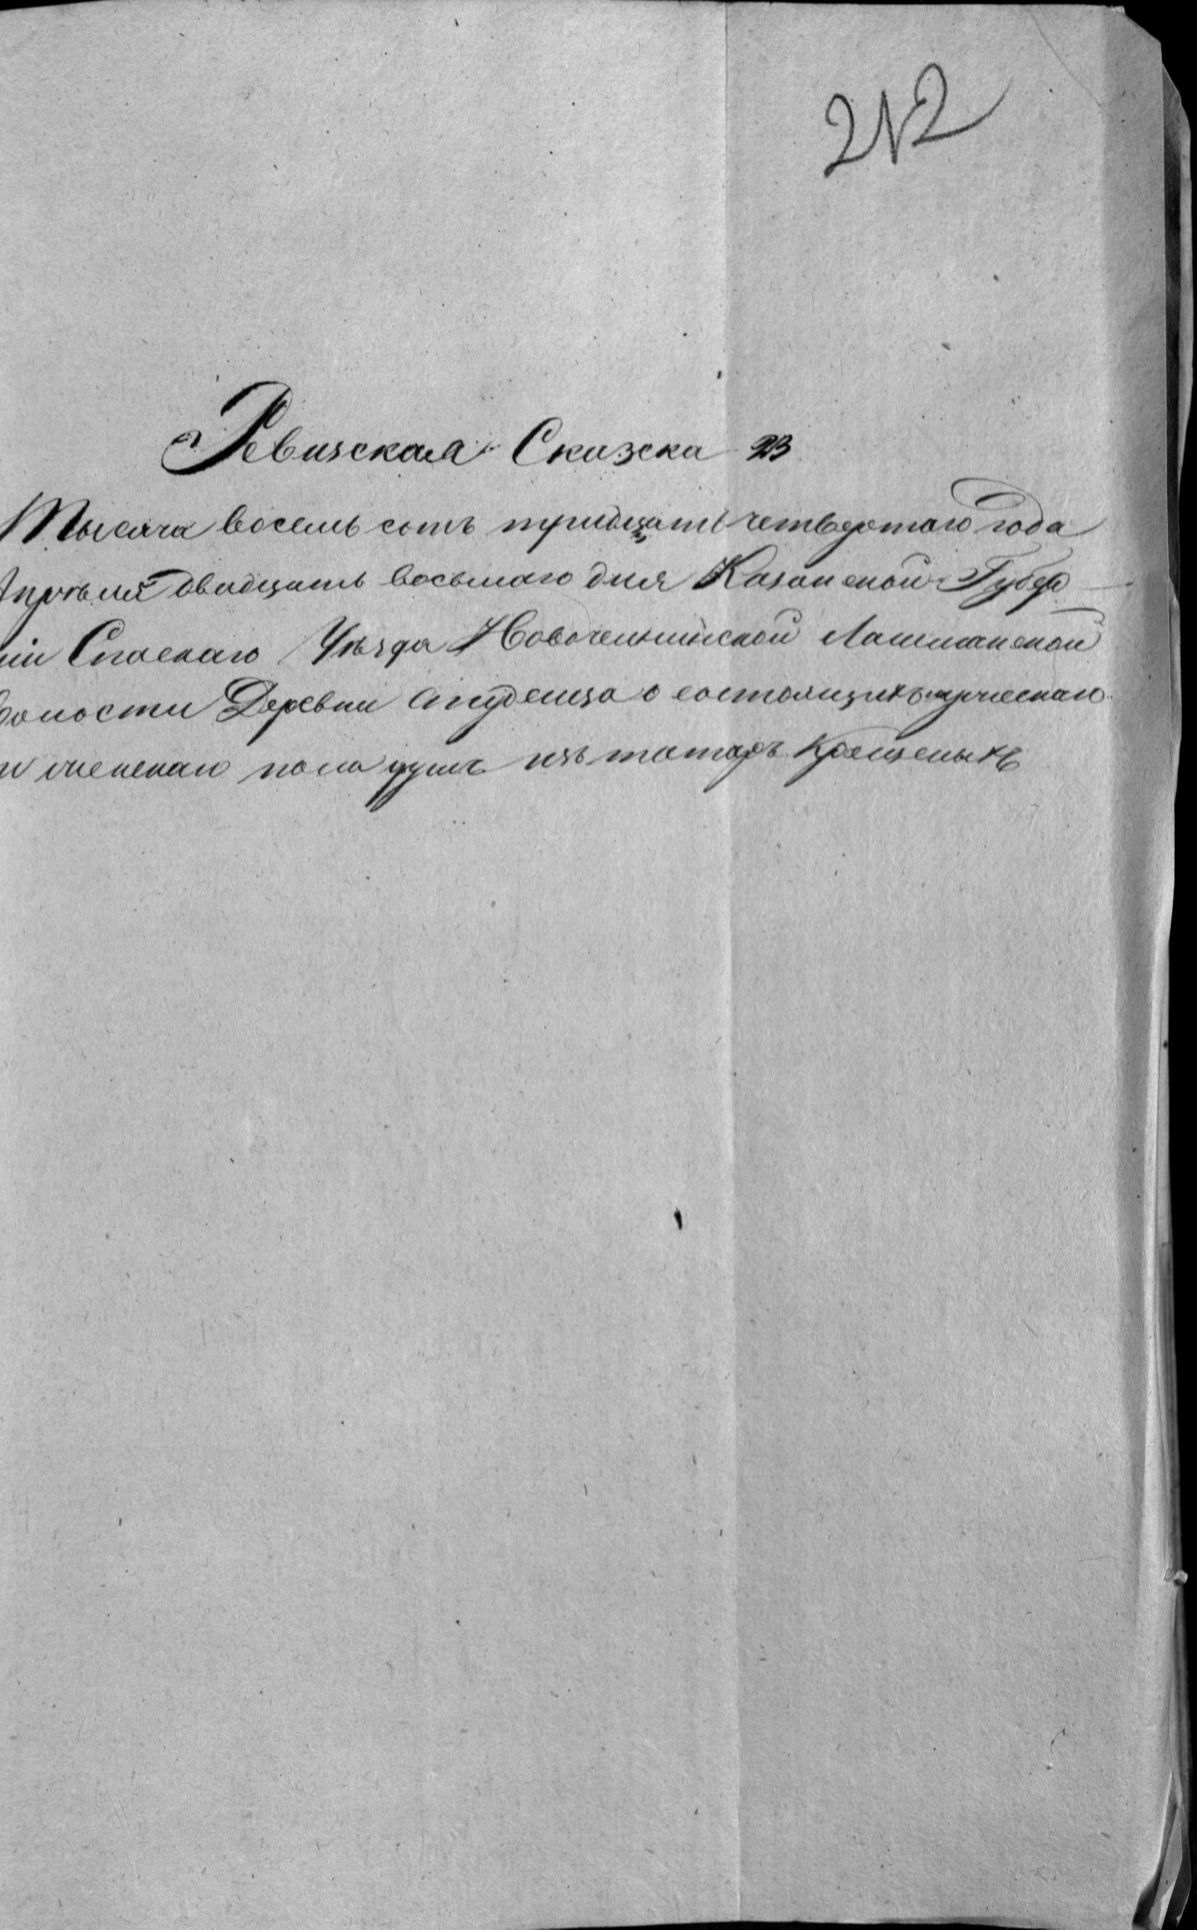 212
Ревизская Сказска 23
Тысяча восемь сотъ тридцать четвертаго года
Апреля двадцать восьмаго дня Казанской Губер
ніи Спаскаго Уезда Новочелнинской Лашманской
Волости Деревни Студенца о состоящихъ мужескаго
и женскаго пола душъ изъ татаръ Крещеныхъ